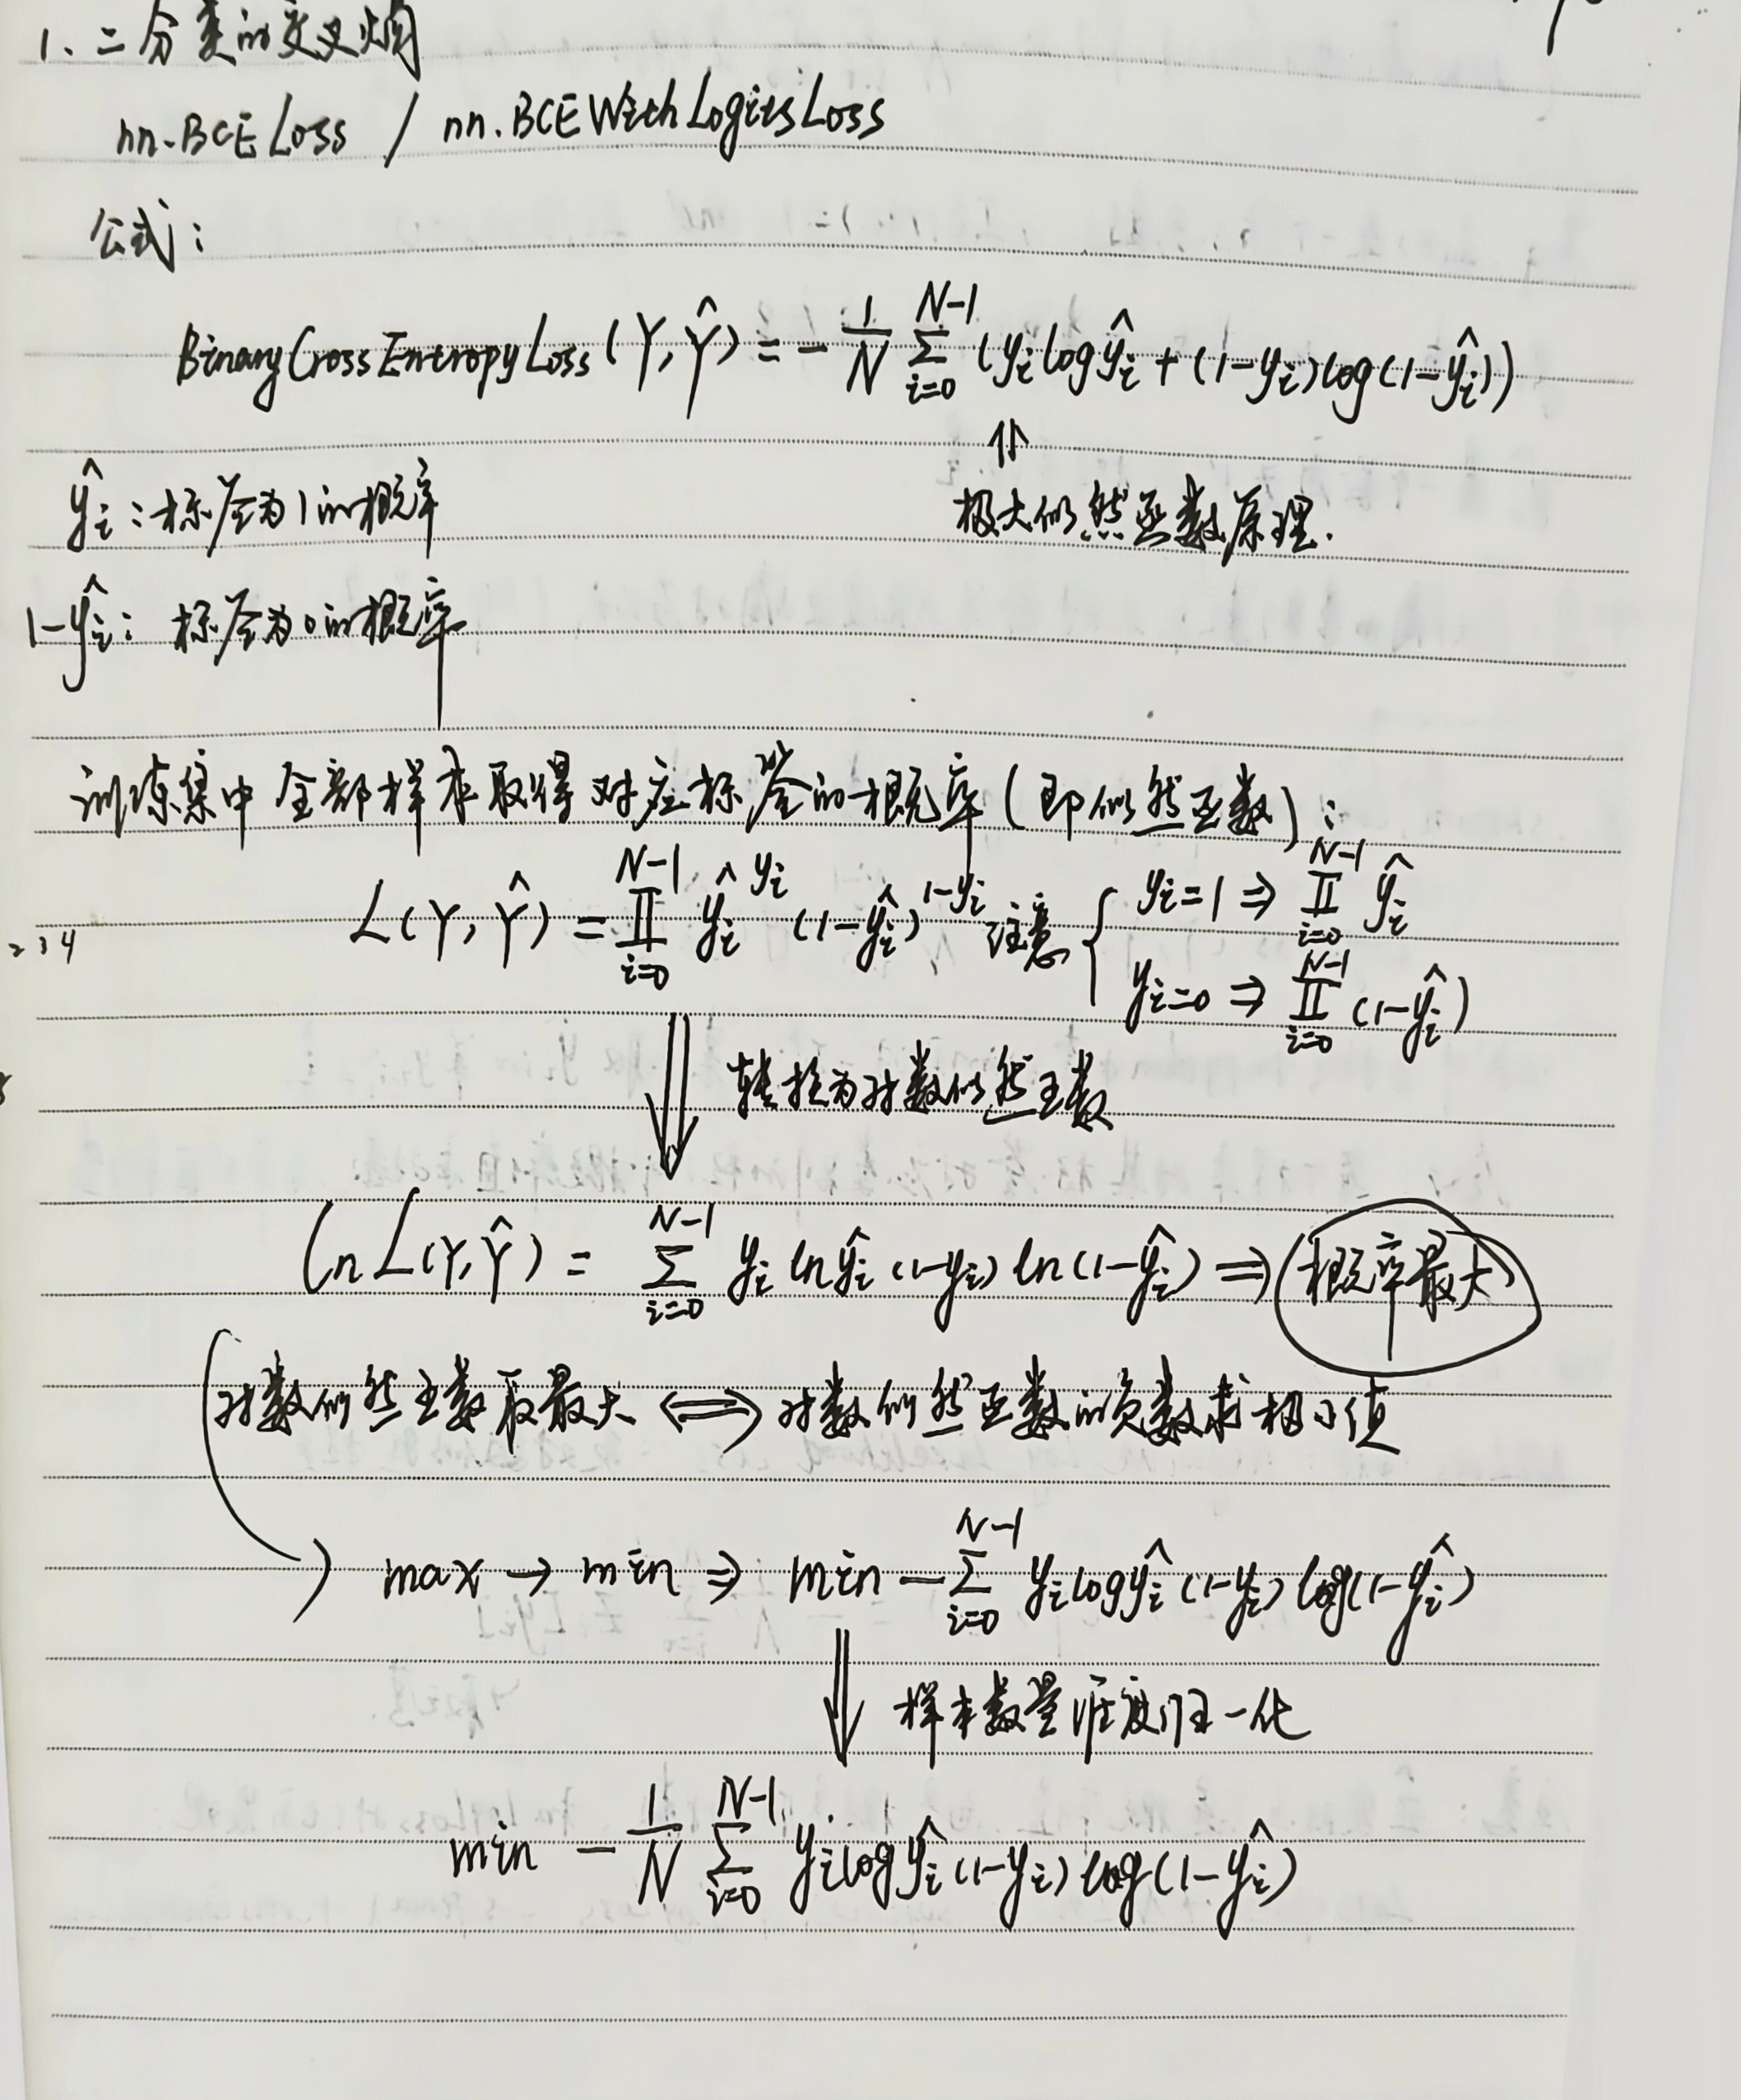 1、二分类的交叉熵
nn.BCELoss / nn.BCEWithLogitsLoss
公式：
BinaryCrossEntropyLoss(Y, Ŷ) = -1/N ∑_{i=0}^{N-1} (y_i log ŷ_i + (1-y_i) log(1-ŷ_i))
⇑
ŷ_i：标签为1的概率
极大似然函数原理.
1-ŷ_i：标签为0的概率
训练集中全部样本取得对应标签的概率（即似然函数）：
L(Y, Ŷ) = ∏_{i=0}^{N-1} ŷ_i^{y_i} (1-ŷ_i)^{1-y_i} 注意 { y_i=1 ⇒ ∏_{i=0}^{N-1} ŷ_i
y_i=0 ⇒ ∏_{i=0}^{N-1} (1-ŷ_i)
⇓ 转换为对数似然函数
ln L(Y, Ŷ) = ∑_{i=0}^{N-1} y_i ln ŷ_i (1-y_i) ln(1-ŷ_i) ⇒ 概率最大
对数似然函数取最大 ⟺ 对数似然函数的负数求极小值
max → min ⇒ min -∑_{i=0}^{N-1} y_i log ŷ_i (1-y_i) log(1-ŷ_i)
⇓ 样本数量维度归一化
min -1/N ∑_{i=0}^{N-1} y_i log ŷ_i (1-y_i) log(1-ŷ_i)